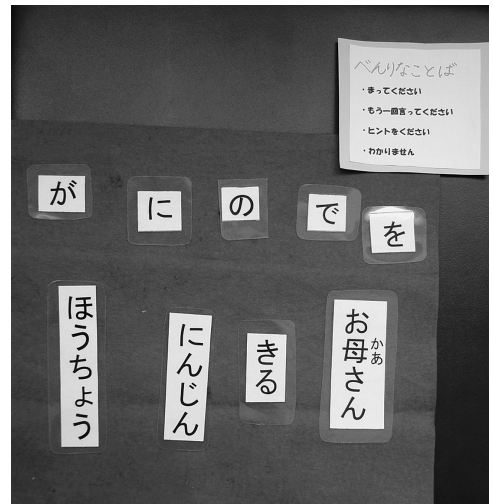 べんりなことば
・まってください
・もう一回言ってください
・ヒントをください
・わかりません
が
に
の
で
を
ほうちょう
にんじん
きる
お母さん
かあ